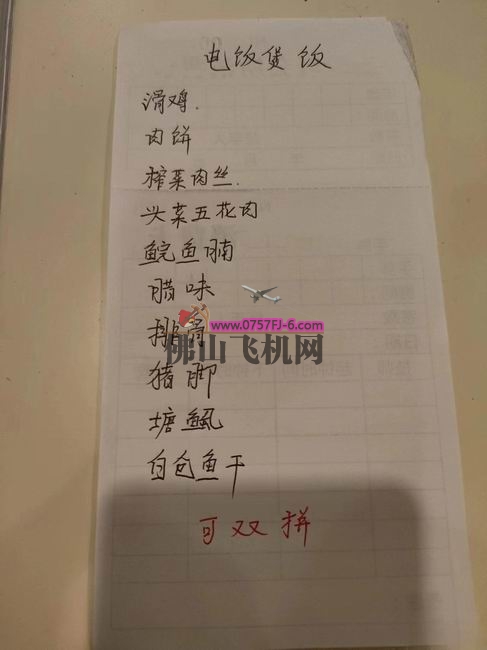 电饭煲饭
滑鸡.
肉饼
榨菜肉丝.
头菜五花肉
鲩鱼腩
腊味
排骨
www.0757FJ-6.com
佛山飞机网
猪脚
塘鲺
白仓鱼干
可双拼